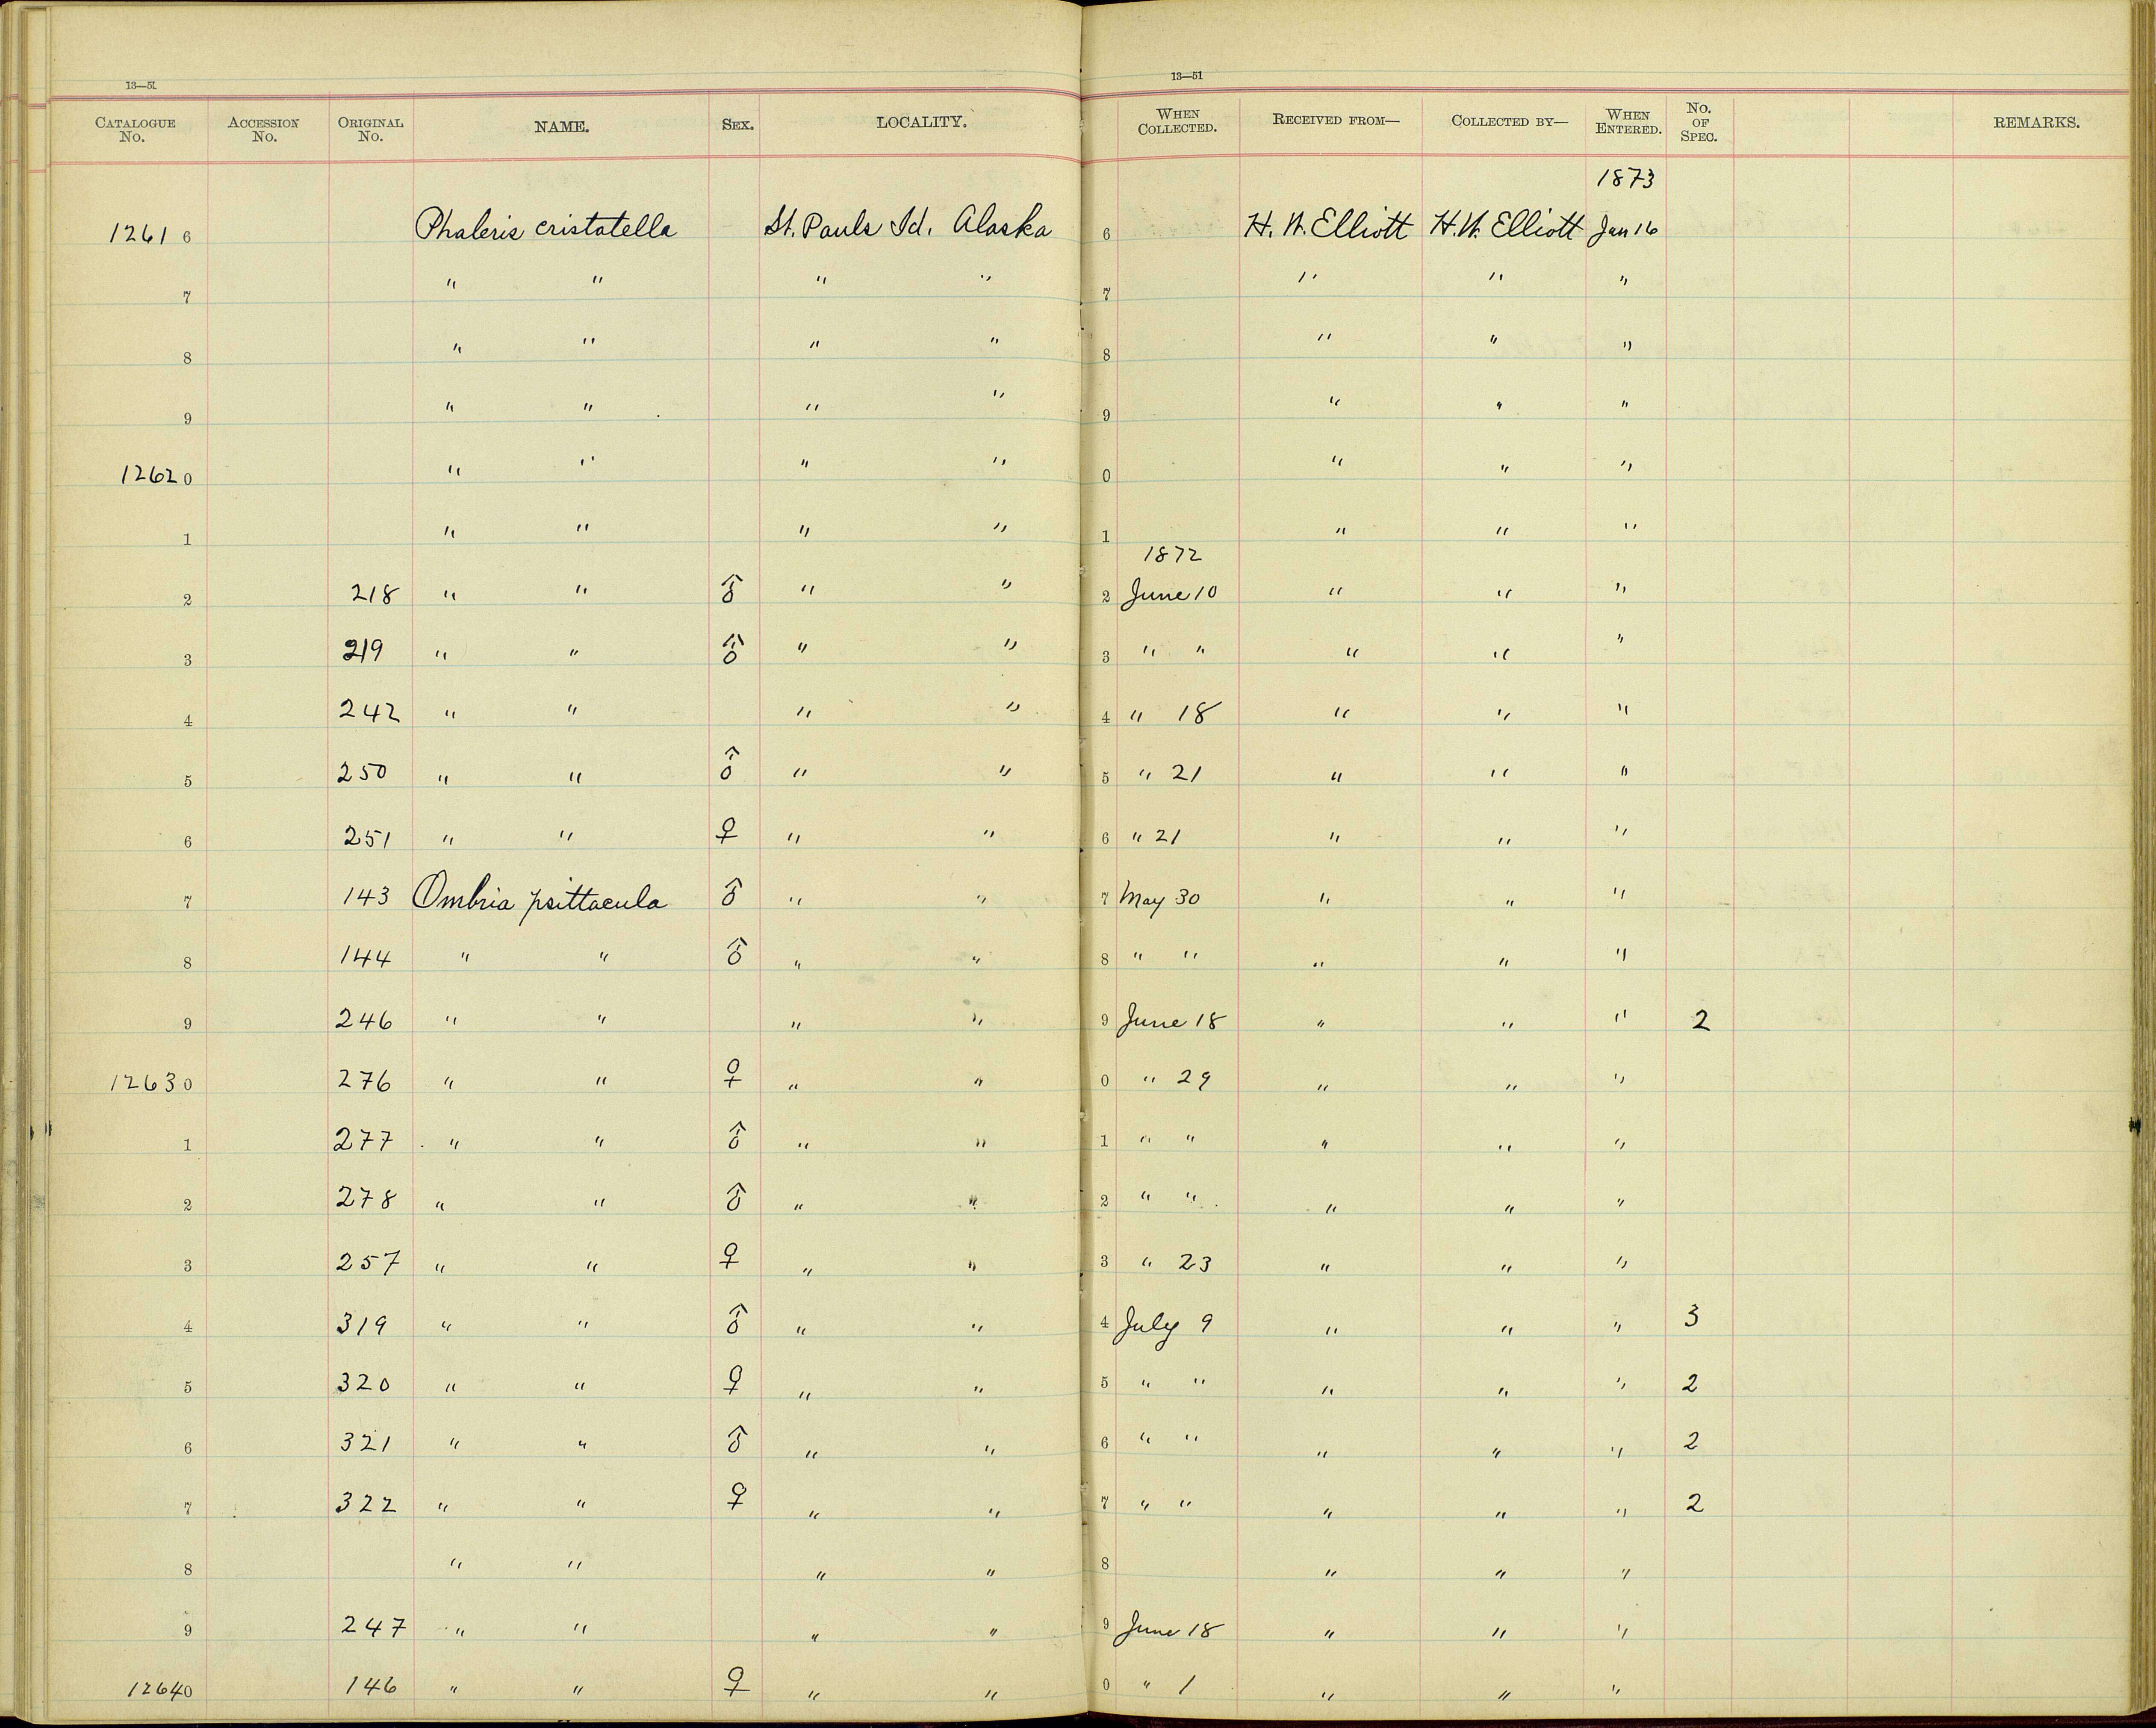 13—51
13—51
CATALOGUE No. ACCESSION No. ORIGINAL No. NAME. SEX. LOCALITY. WHEN COLLECTED. RECEIVED FROM— COLLECTED BY— WHEN ENTERED. No. OF SPEC. REMARKS.
1873
1261 6 Phaleris cristatella St. Pauls Id. Alaska 6 H. W. Elliott H. W. Elliott Jan 16
7 " " " " 7 " " "
8 " " " " 8 " " "
9 " " " " 9 " " "
1262 0 " " " " 0 " " "
1 " " " " 1 " " "
1872
2 218 " " ♂ " " 2 June 10 " " "
3 219 " " ♂ " " 3 " " " " "
4 242 " " " " 4 " 18 " " "
5 250 " " ♂ " " 5 " 21 " " "
6 251 " " ♀ " " 6 " 21 " " "
7 143 Ombria psittacula ♂ " " 7 May 30 " " "
8 144 " " ♂ " " 8 " " " " "
9 246 " " " " 9 June 18 " " " 2
1263 0 276 " " ♀ " " 0 " 29 " " "
1 277 " " ♂ " " 1 " " " " "
2 278 " " ♂ " " 2 " " " " "
3 257 " " ♀ " " 3 " 23 " " "
4 319 " " ♂ " " 4 July 9 " " " 3
5 320 " " ♀ " " 5 " " " " " 2
6 321 " " ♂ " " 6 " " " " " 2
7 322 " " ♀ " " 7 " " " " " 2
8 " " " " 8 " " "
9 247 " " " " 9 June 18 " " "
1264 0 146 " " ♀ " " 0 " 1 " " "